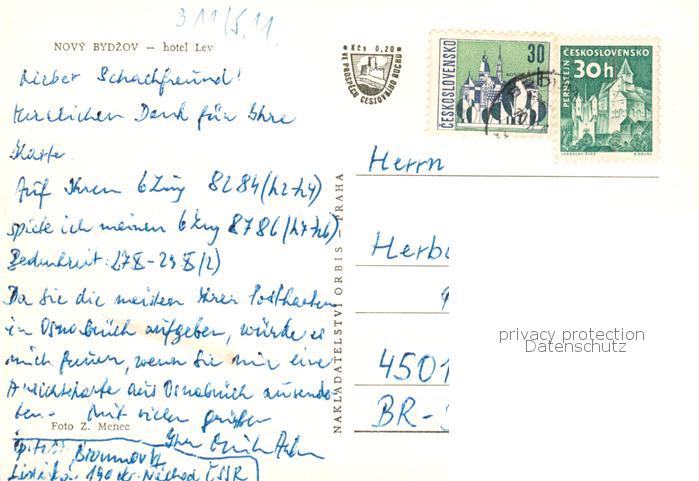 311/5.11
NOVÝ BYDŽOV — hotel Lev
Lieber Schachfreund!
Herzlichen Dank für Ihre
Karte.
Auf Ihren 6 Zug 8284 (h2-h4)
spiele ich meinen 6 Zug 8786 (h7-h6)
Bedenkzeit: 27X-29X/2)
Da Sie die meisten Ihrer Postkarten
in Osnabrück aufgeben, würde es
mich freuen, wenn Sie mir eine
Ansichtskarte aus Osnabrück zusende-
ten. Mit vielen grüßen
Foto Z. Menec
Ihr
Broumov
190 okr. Náchod ČSSR
Kčs 0,20
VE PROSPĚCH CESTOVNÍHO RUCHU
ČESKOSLOVENSKO
30
ČESKOSLOVENSKO
30h
PERNŠTEJN
NAKLADATELSTVÍ ORBIS — PRAHA
Herrn
Herb
4501
BR-
privacy protection
Datenschutz